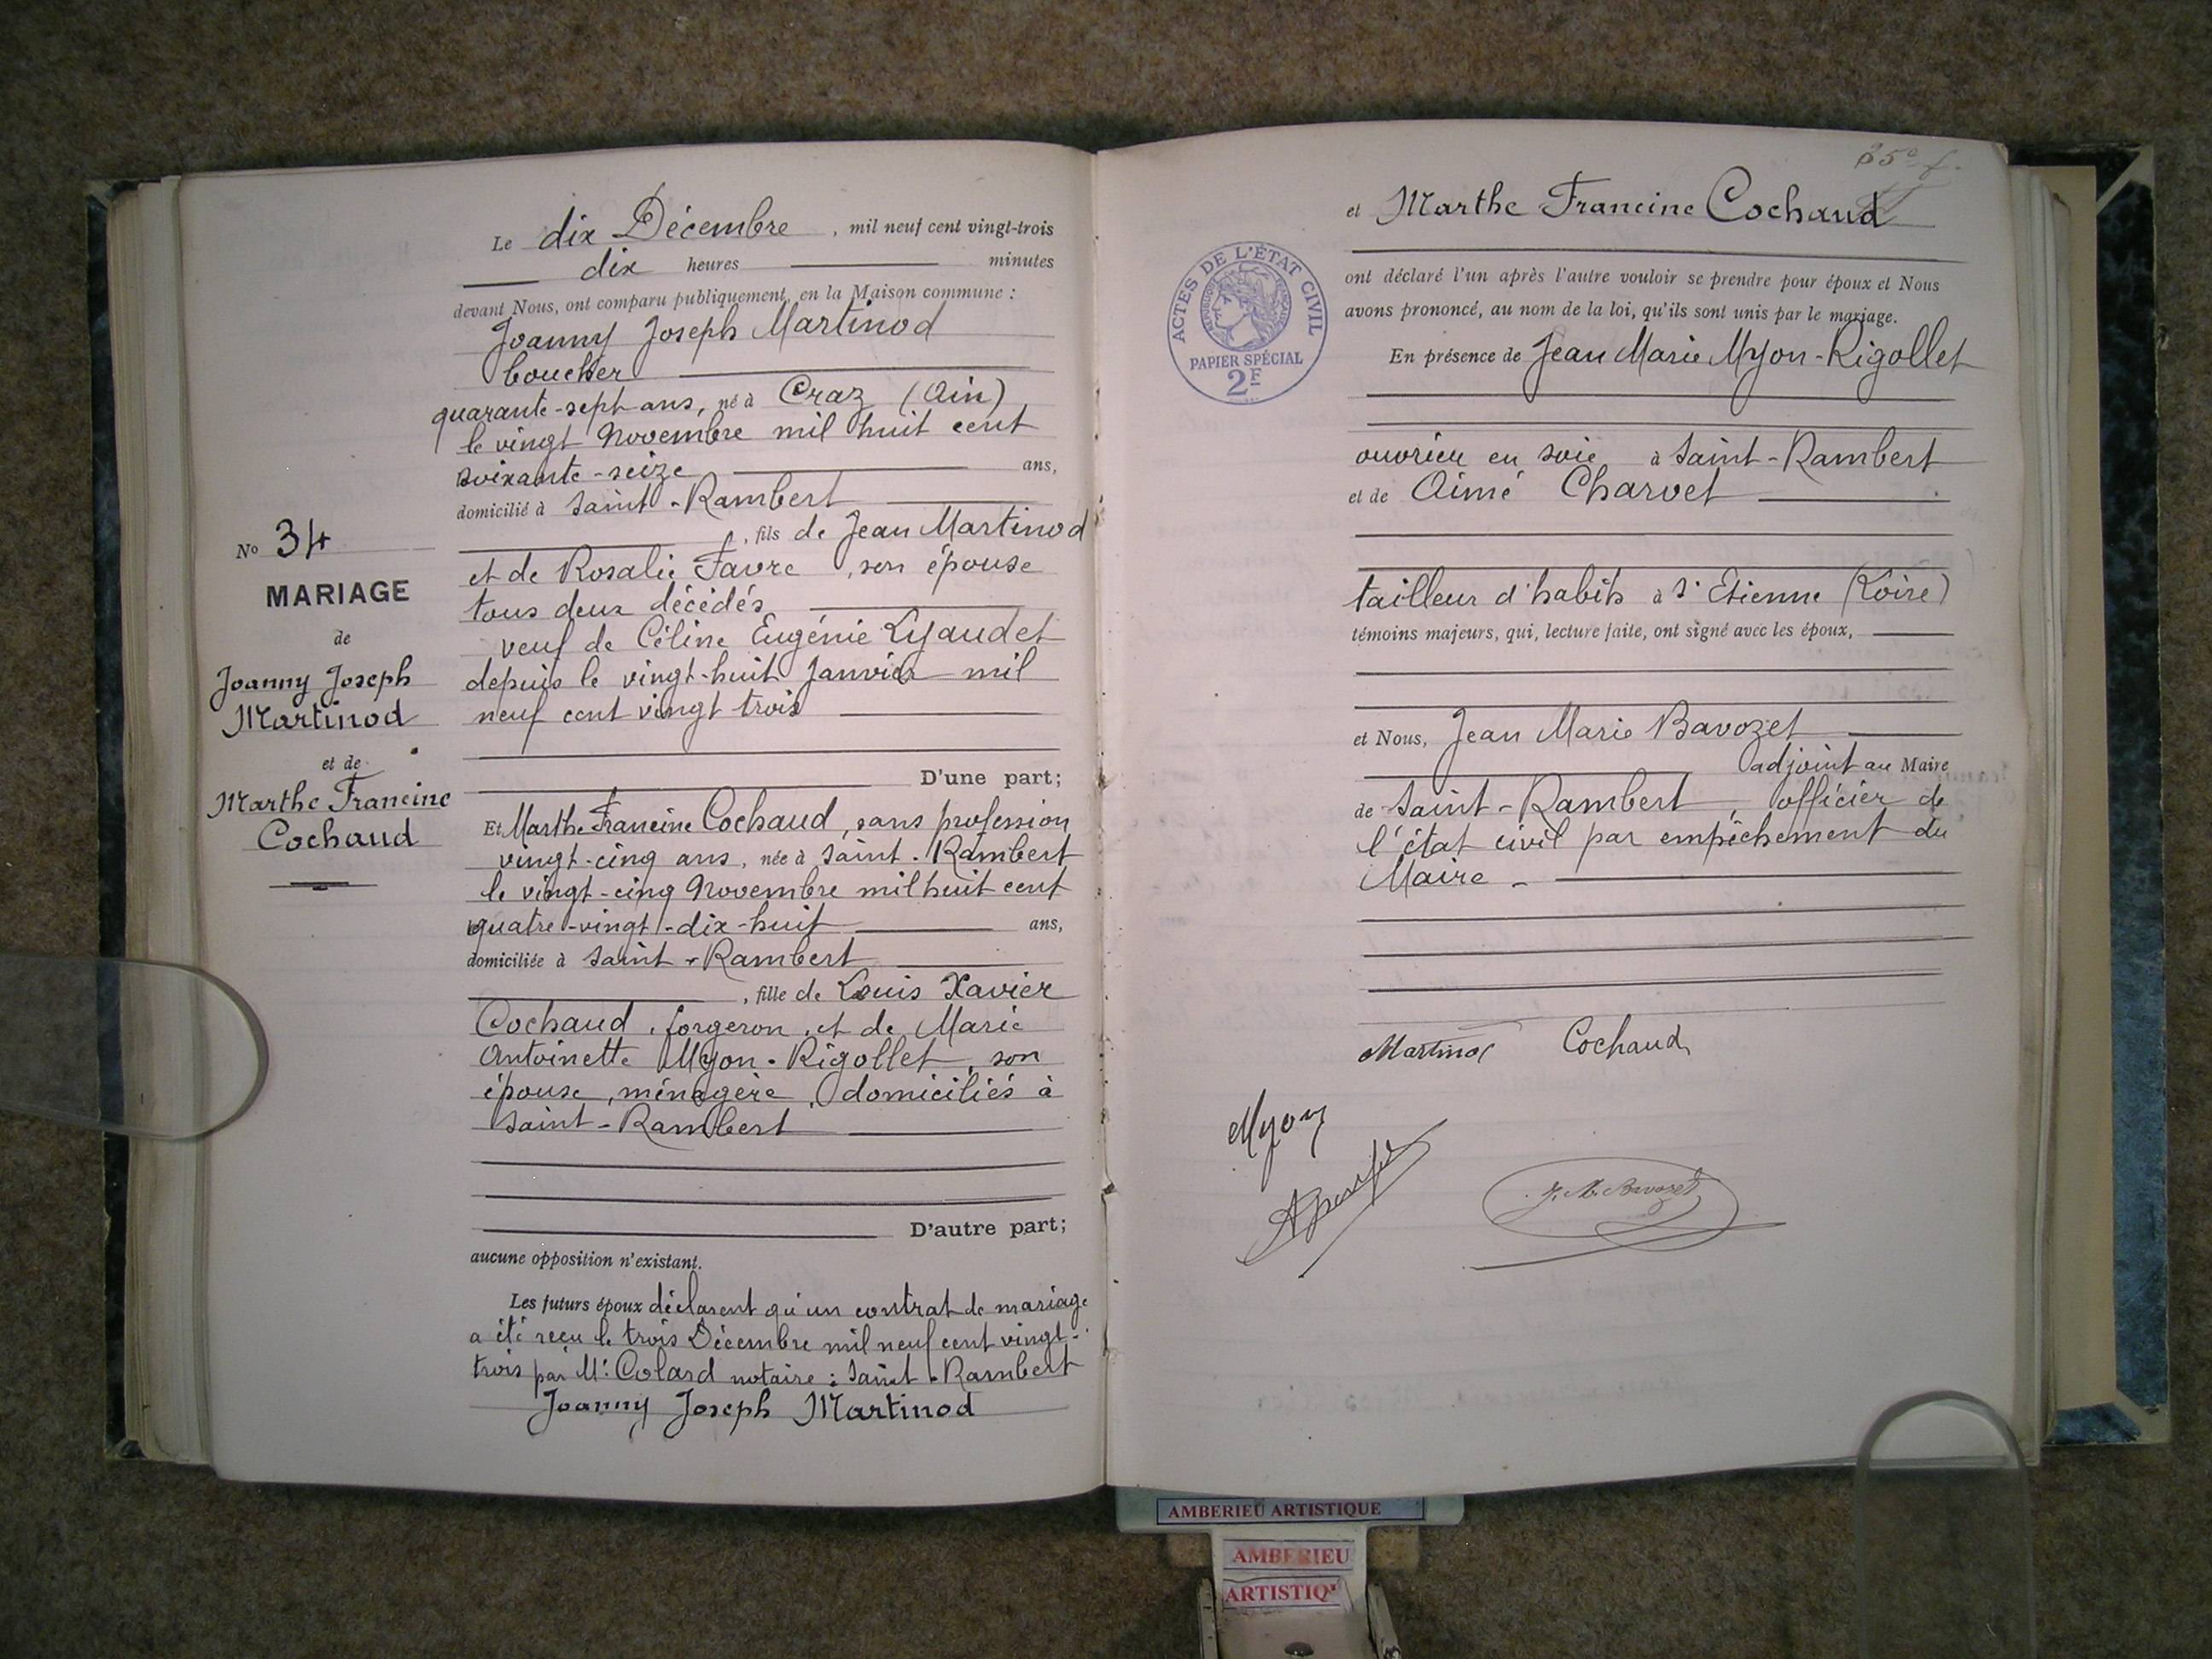 No 34
MARIAGE
de
Joanny Joseph
Martinod
et de
Marthe Francine
Cochaud
Le dix Décembre, mil neuf cent vingt-trois
dix heures minutes
devant Nous, ont comparu publiquement, en la Maison commune :
Joanny Joseph Martinod
boucher
quarante-sept ans, né à Craz (Ain)
le vingt Novembre mil huit cent
soixante-seize ans,
domicilié à Saint-Rambert
, fils de Jean Martinod
et de Rosalie Favre, son épouse
tous deux décédés
veuf de Céline Eugénie Lyaudet
depuis le vingt-huit Janvier mil
neuf cent vingt trois
D'une part;
Et Marthe Francine Cochaud, sans profession
vingt-cinq ans, née à Saint-Rambert
le vingt-cinq Novembre mil huit cent
quatre-vingt-dix-huit ans,
domiciliée à Saint-Rambert
, fille de Louis Xavier
Cochaud, forgeron, et de Marie
Antoinette Myon-Rigollet, son
épouse, ménagère, domiciliés à
Saint-Rambert
D'autre part;
aucune opposition n'existant.
Les futurs époux déclarent qu'un contrat de mariage
a été reçu le trois Décembre mil neuf cent vingt-
trois par Me Colard notaire à Saint-Rambert
Joanny Joseph Martinod
et Marthe Francine Cochaud
ACTES DE L'ÉTAT CIVIL
RÉPUBLIQUE FRANÇAISE
PAPIER SPÉCIAL
2F
ont déclaré l'un après l'autre vouloir se prendre pour époux et Nous
avons prononcé, au nom de la loi, qu'ils sont unis par le mariage.
En présence de Jean Marie Myon-Rigollet
ouvrier en soie à Saint-Rambert
et de Aimé Charvet
tailleur d'habits à St Etienne (Loire)
témoins majeurs, qui, lecture faite, ont signé avec les époux,
et Nous, Jean Marie Bavozet
adjoint au Maire
de Saint-Rambert, officier de
l'état civil par empêchement du
Maire
Martinod Cochaud
Myon
J. M. Bavozet
AMBERIEU ARTISTIQUE
AMBERIEU
ARTISTIQ